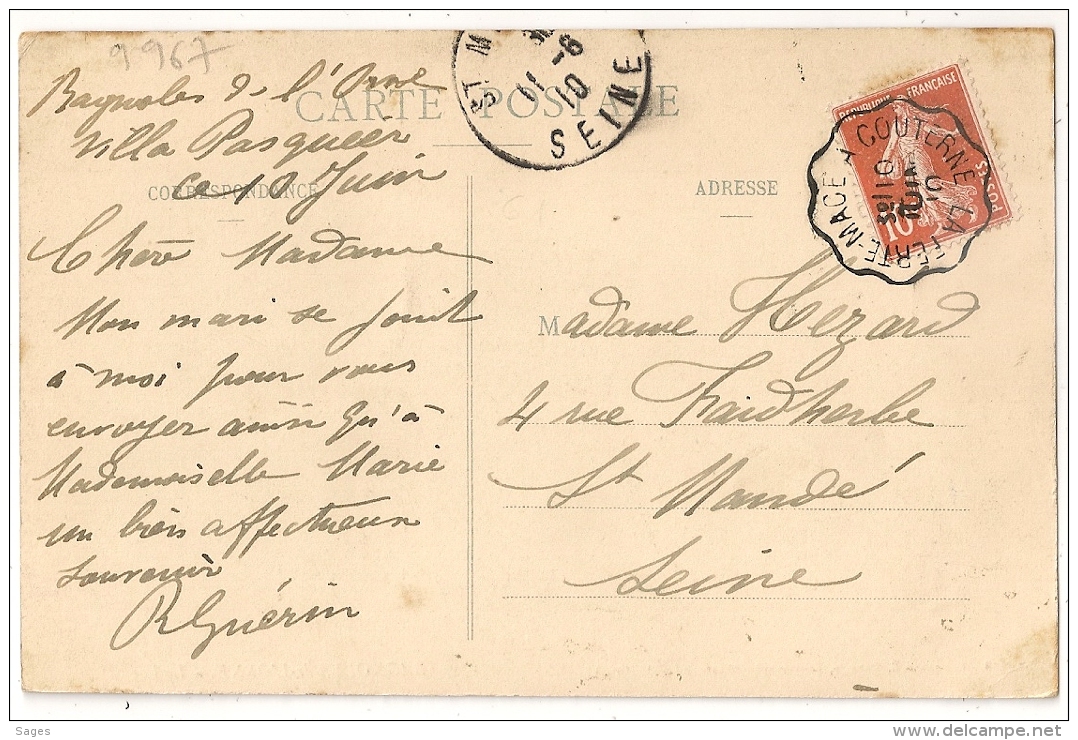 9967
Bagnoles de l'Orne
Villa Pasquier
ce 10 Juin
CARTE POSTALE
CORRESPONDANCE
Chère Madame
Mon mari se joint
à moi pour vous
envoyer ainsi qu'à
Mademoiselle Marie
un bien affectueux
souvenir
RGuérin
ST M
11 -6
10
SEINE
ADRESSE
REPUBLIQUE FRANÇAISE
POSTES
10
COUTERNE A LA FERTE-MACE
10
JUIN
10
Madame Hezard
4 rue Faidherbe
St Mandé
Seine
Sages
www.delcampe.net